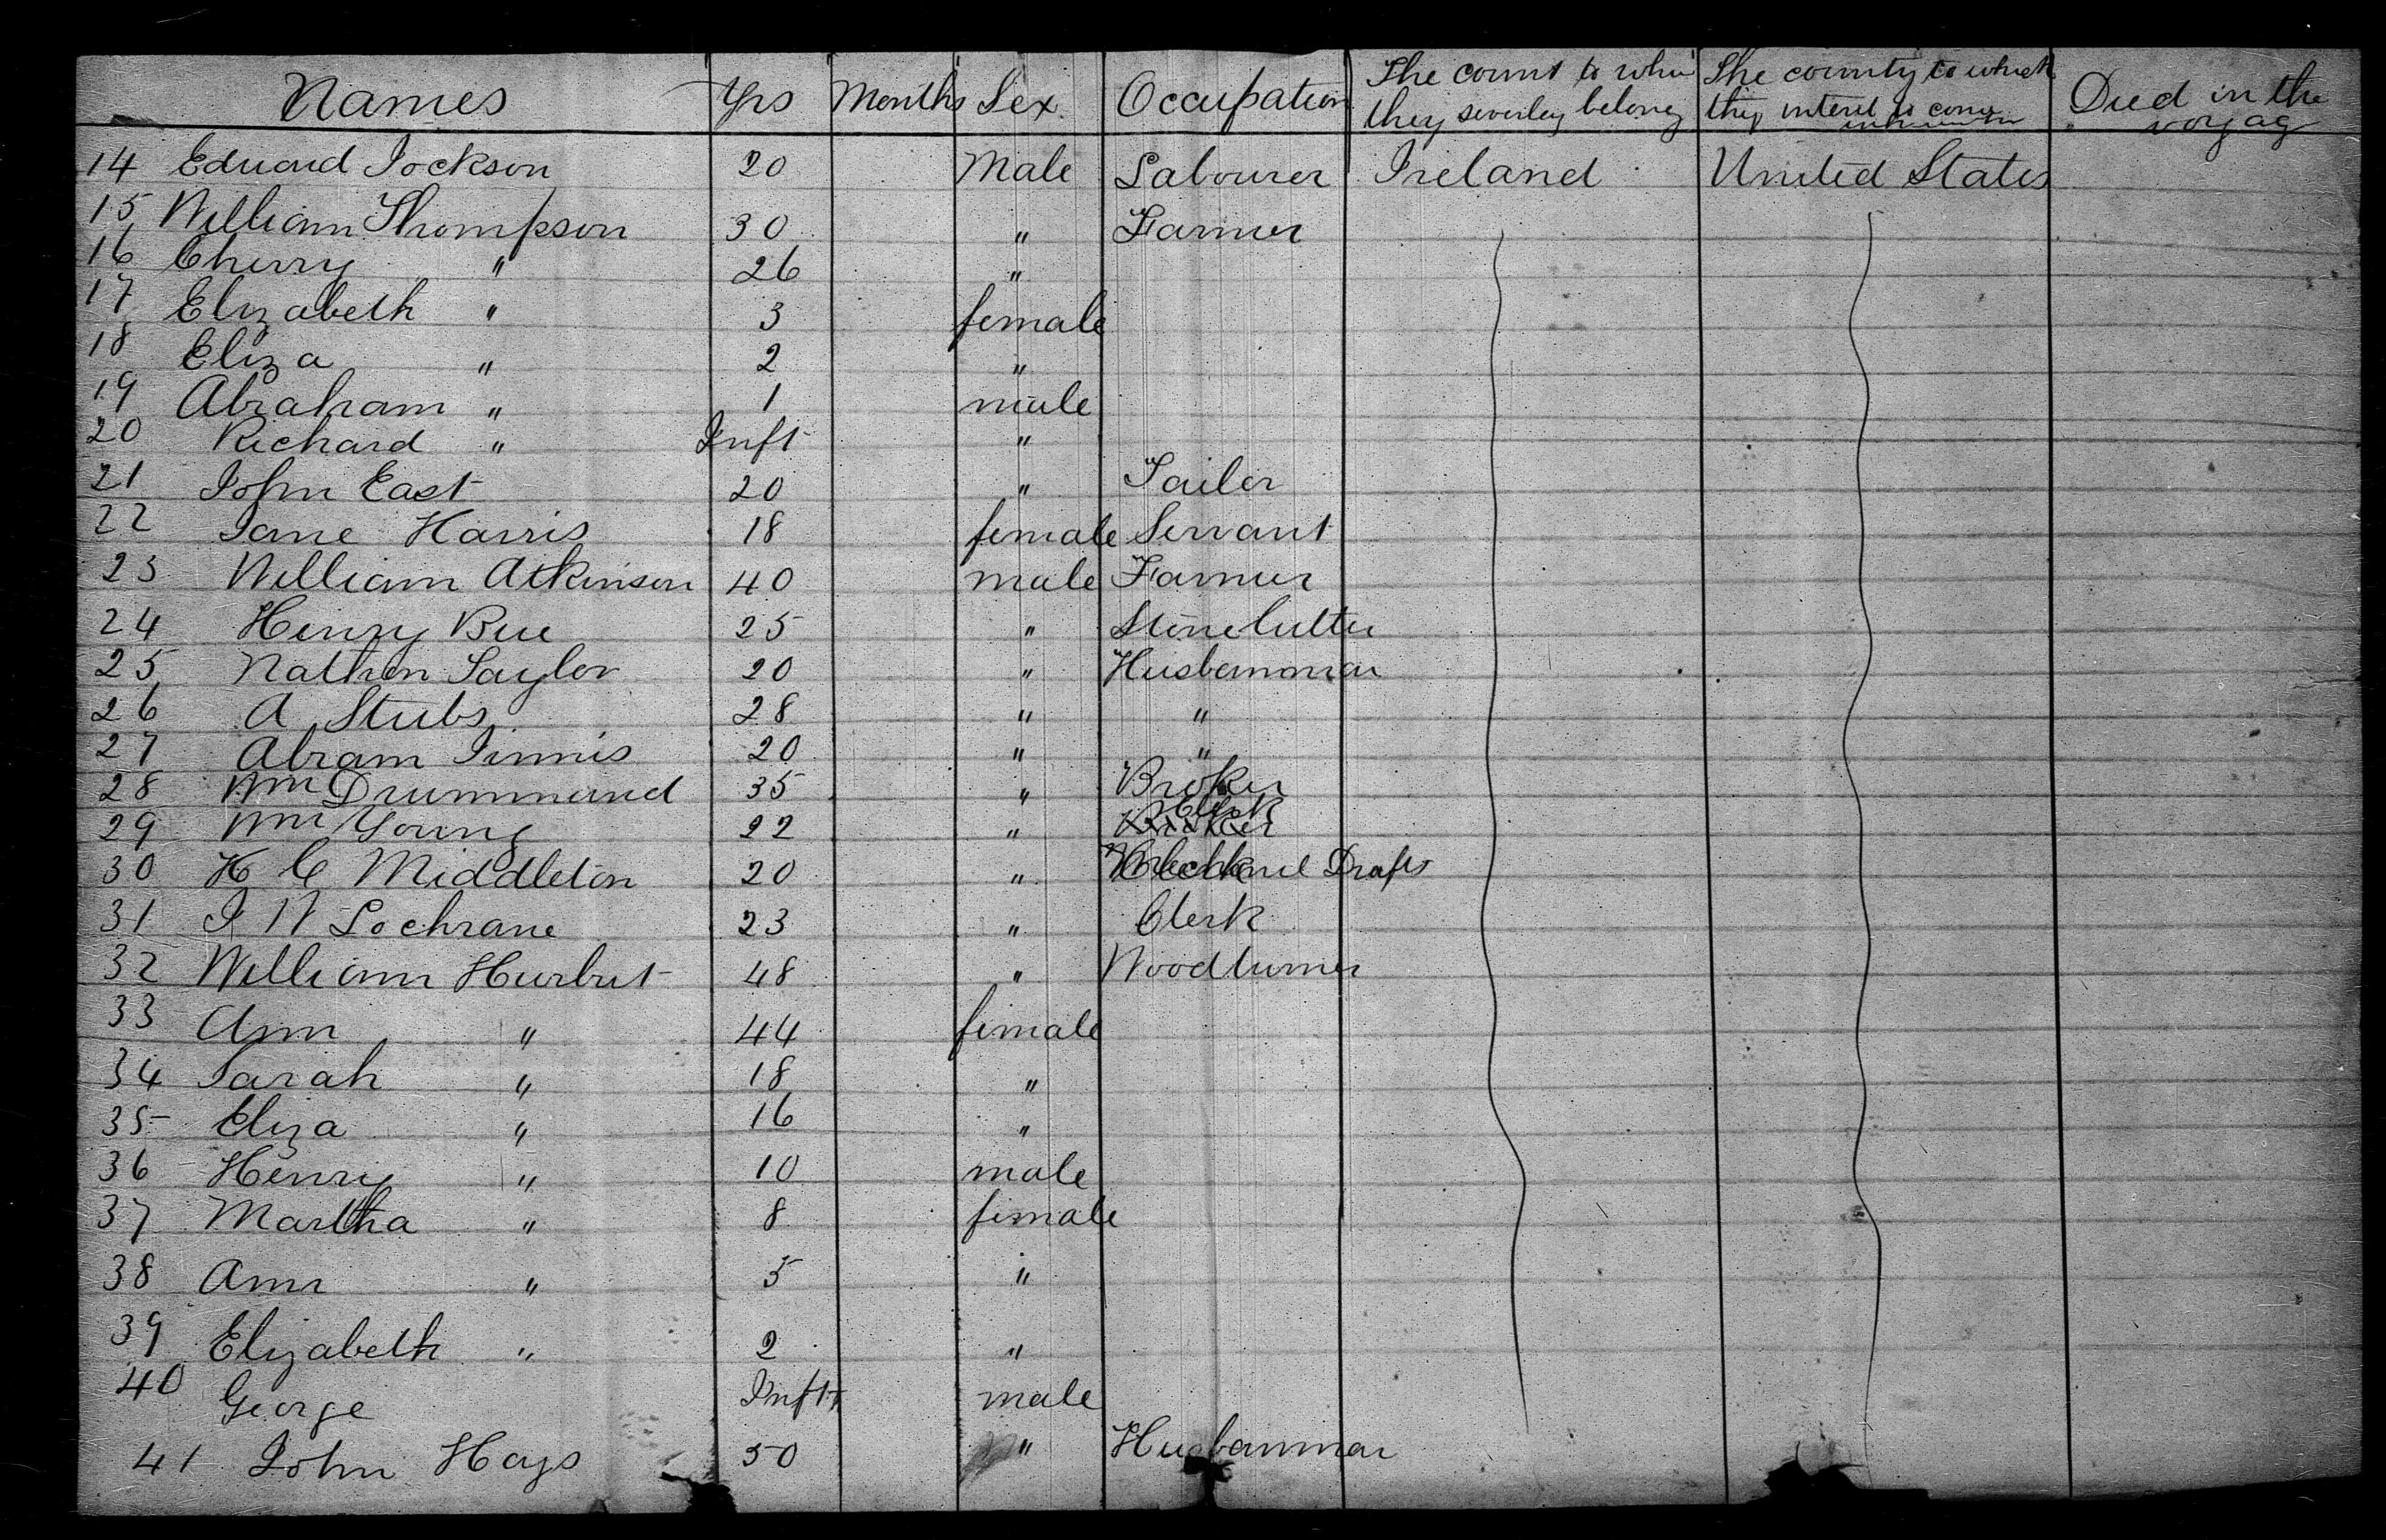 Names Yrs Months Sex Occupation The count to whi they severley belong The country to which they intend to Died in the voyag
14 Edward Jockson 20 Male Labourer Ireland United States
15 William Thompson 30 " Farmer
16 Cherry " 26 "
17 Elizabeth " 3 female
18 Eliza " 2 "
19 Abraham " 1 male
20 Richard " Inft "
21 John East 20 " Tailer
22 Jane Harris 18 female Servant
23 William Atkinson 40 male Farmer
24 Henry Bue 25 " Stone Cutter
25 Nathen Taylor 20 " Husbanman
26 A Stubs 28 " "
27 Abram Jinnis 20 " "
28 Wm Drummand 35 " Broker
29 Wm Young 22 " Clerk
30 H C Middleton 20 " Drafts
31 J W Lochrane 23 " Clerk
32 William Hurbut 48 " Woodturner
33 Ann " 44 female
34 Sarah " 18 "
35 Eliza " 16 "
36 Henry " 10 male
37 Martha " 8 female
38 Ann " 5 "
39 Elizabeth " 2 "
40 George Inft male
41 John Hays 50 " Husbanman